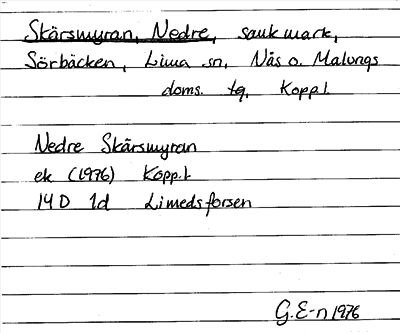 Skärsmyran, Nedre, sank mark,
Sörbäcken, Lima sn, Nås o. Malungs
doms. tg, Kopp.l.
Nedre Skärsmyran
ek (1976) Kopp.l
14D 1d Limedsforsen
G.E-n 1976